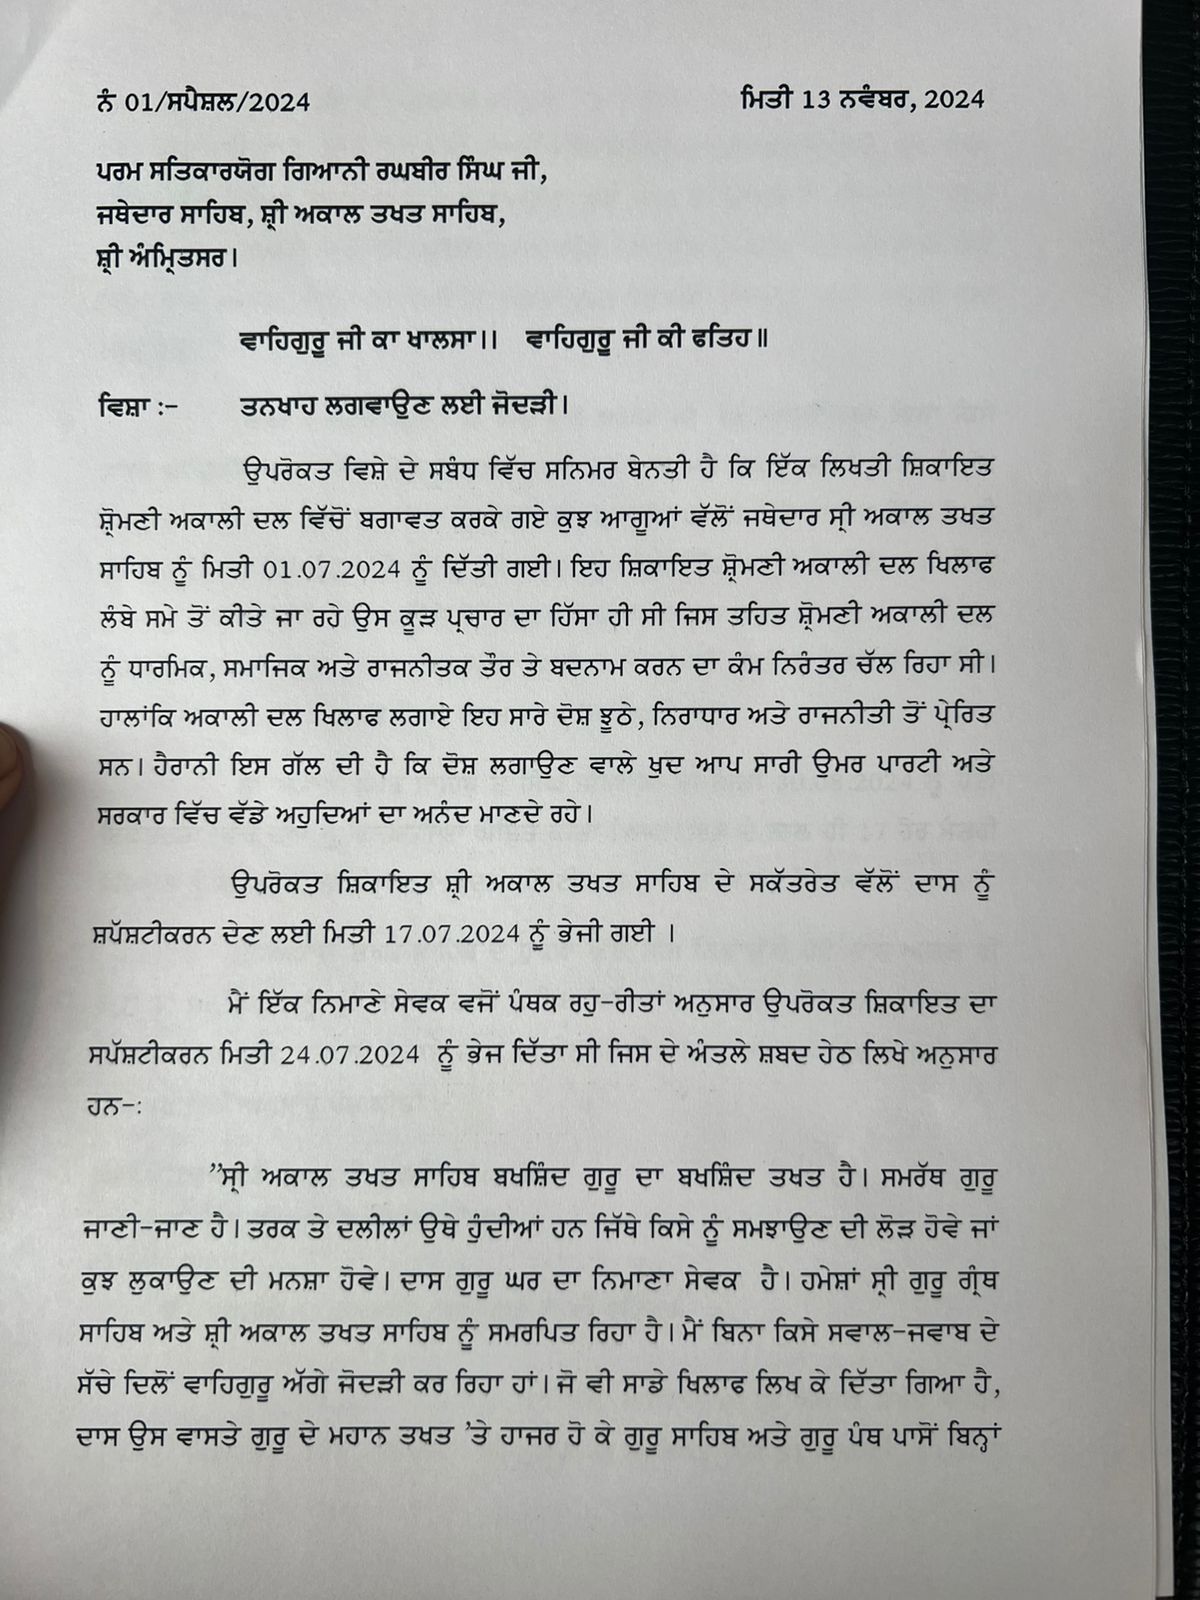 ਨੰ 01/ਸਪੈਸ਼ਲ/2024 ਮਿਤੀ 13 ਨਵੰਬਰ, 2024
ਪਰਮ ਸਤਿਕਾਰਯੋਗ ਗਿਆਨੀ ਰਘਬੀਰ ਸਿੰਘ ਜੀ,
ਜਥੇਦਾਰ ਸਾਹਿਬ, ਸ਼੍ਰੀ ਅਕਾਲ ਤਖਤ ਸਾਹਿਬ,
ਸ਼੍ਰੀ ਅੰਮ੍ਰਿਤਸਰ।
ਵਾਹਿਗੁਰੂ ਜੀ ਕਾ ਖਾਲਸਾ।। ਵਾਹਿਗੁਰੂ ਜੀ ਕੀ ਫਤਿਹ॥
ਵਿਸ਼ਾ :- ਤਨਖਾਹ ਲਗਵਾਉਣ ਲਈ ਜੋਦੜੀ।
ਉਪਰੋਕਤ ਵਿਸ਼ੇ ਦੇ ਸਬੰਧ ਵਿੱਚ ਸਨਿਮਰ ਬੇਨਤੀ ਹੈ ਕਿ ਇੱਕ ਲਿਖਤੀ ਸ਼ਿਕਾਇਤ
ਸ਼੍ਰੋਮਣੀ ਅਕਾਲੀ ਦਲ ਵਿੱਚੋਂ ਬਗਾਵਤ ਕਰਕੇ ਗਏ ਕੁਝ ਆਗੂਆਂ ਵੱਲੋਂ ਜਥੇਦਾਰ ਸ੍ਰੀ ਅਕਾਲ ਤਖਤ
ਸਾਹਿਬ ਨੂੰ ਮਿਤੀ 01.07.2024 ਨੂੰ ਦਿੱਤੀ ਗਈ। ਇਹ ਸ਼ਿਕਾਇਤ ਸ਼੍ਰੋਮਣੀ ਅਕਾਲੀ ਦਲ ਖਿਲਾਫ
ਲੰਬੇ ਸਮੇ ਤੋਂ ਕੀਤੇ ਜਾ ਰਹੇ ਉਸ ਕੂੜ ਪ੍ਰਚਾਰ ਦਾ ਹਿੱਸਾ ਹੀ ਸੀ ਜਿਸ ਤਹਿਤ ਸ਼੍ਰੋਮਣੀ ਅਕਾਲੀ ਦਲ
ਨੂੰ ਧਾਰਮਿਕ, ਸਮਾਜਿਕ ਅਤੇ ਰਾਜਨੀਤਕ ਤੌਰ ਤੇ ਬਦਨਾਮ ਕਰਨ ਦਾ ਕੰਮ ਨਿਰੰਤਰ ਚੱਲ ਰਿਹਾ ਸੀ।
ਹਾਲਾਂਕਿ ਅਕਾਲੀ ਦਲ ਖਿਲਾਫ ਲਗਾਏ ਇਹ ਸਾਰੇ ਦੋਸ਼ ਝੂਠੇ, ਨਿਰਾਧਾਰ ਅਤੇ ਰਾਜਨੀਤੀ ਤੋਂ ਪ੍ਰੇਰਿਤ
ਸਨ। ਹੈਰਾਨੀ ਇਸ ਗੱਲ ਦੀ ਹੈ ਕਿ ਦੋਸ਼ ਲਗਾਉਣ ਵਾਲੇ ਖੁਦ ਆਪ ਸਾਰੀ ਉਮਰ ਪਾਰਟੀ ਅਤੇ
ਸਰਕਾਰ ਵਿੱਚ ਵੱਡੇ ਅਹੁਦਿਆਂ ਦਾ ਅਨੰਦ ਮਾਣਦੇ ਰਹੇ।
ਉਪਰੋਕਤ ਸ਼ਿਕਾਇਤ ਸ਼੍ਰੀ ਅਕਾਲ ਤਖਤ ਸਾਹਿਬ ਦੇ ਸਕੱਤਰੇਤ ਵੱਲੋਂ ਦਾਸ ਨੂੰ
ਸ਼ਪੱਸ਼ਟੀਕਰਨ ਦੇਣ ਲਈ ਮਿਤੀ 17.07.2024 ਨੂੰ ਭੇਜੀ ਗਈ ।
ਮੈਂ ਇੱਕ ਨਿਮਾਣੇ ਸੇਵਕ ਵਜੋਂ ਪੰਥਕ ਰਹੁ-ਰੀਤਾਂ ਅਨੁਸਾਰ ਉਪਰੋਕਤ ਸ਼ਿਕਾਇਤ ਦਾ
ਸਪੱਸ਼ਟੀਕਰਨ ਮਿਤੀ 24.07.2024 ਨੂੰ ਭੇਜ ਦਿੱਤਾ ਸੀ ਜਿਸ ਦੇ ਅੰਤਲੇ ਸ਼ਬਦ ਹੇਠ ਲਿਖੇ ਅਨੁਸਾਰ
ਹਨ-:
”ਸ੍ਰੀ ਅਕਾਲ ਤਖਤ ਸਾਹਿਬ ਬਖਸ਼ਿੰਦ ਗੁਰੂ ਦਾ ਬਖਸ਼ਿੰਦ ਤਖਤ ਹੈ। ਸਮਰੱਥ ਗੁਰੂ
ਜਾਣੀ-ਜਾਣ ਹੈ। ਤਰਕ ਤੇ ਦਲੀਲਾਂ ਉਥੇ ਹੁੰਦੀਆਂ ਹਨ ਜਿੱਥੇ ਕਿਸੇ ਨੂੰ ਸਮਝਾਉਣ ਦੀ ਲੋੜ ਹੋਵੇ ਜਾਂ
ਕੁਝ ਲੁਕਾਉਣ ਦੀ ਮਨਸ਼ਾ ਹੋਵੇ। ਦਾਸ ਗੁਰੂ ਘਰ ਦਾ ਨਿਮਾਣਾ ਸੇਵਕ ਹੈ। ਹਮੇਸ਼ਾਂ ਸ੍ਰੀ ਗੁਰੂ ਗ੍ਰੰਥ
ਸਾਹਿਬ ਅਤੇ ਸ਼੍ਰੀ ਅਕਾਲ ਤਖਤ ਸਾਹਿਬ ਨੂੰ ਸਮਰਪਿਤ ਰਿਹਾ ਹੈ। ਮੈਂ ਬਿਨਾ ਕਿਸੇ ਸਵਾਲ-ਜਵਾਬ ਦੇ
ਸੱਚੇ ਦਿਲੋਂ ਵਾਹਿਗੁਰੂ ਅੱਗੇ ਜੋਦੜੀ ਕਰ ਰਿਹਾ ਹਾਂ। ਜੋ ਵੀ ਸਾਡੇ ਖਿਲਾਫ ਲਿਖ ਕੇ ਦਿੱਤਾ ਗਿਆ ਹੈ,
ਦਾਸ ਉਸ ਵਾਸਤੇ ਗੁਰੂ ਦੇ ਮਹਾਨ ਤਖਤ ’ਤੇ ਹਾਜਰ ਹੋ ਕੇ ਗੁਰੂ ਸਾਹਿਬ ਅਤੇ ਗੁਰੂ ਪੰਥ ਪਾਸੋਂ ਬਿਨ੍ਹਾਂ